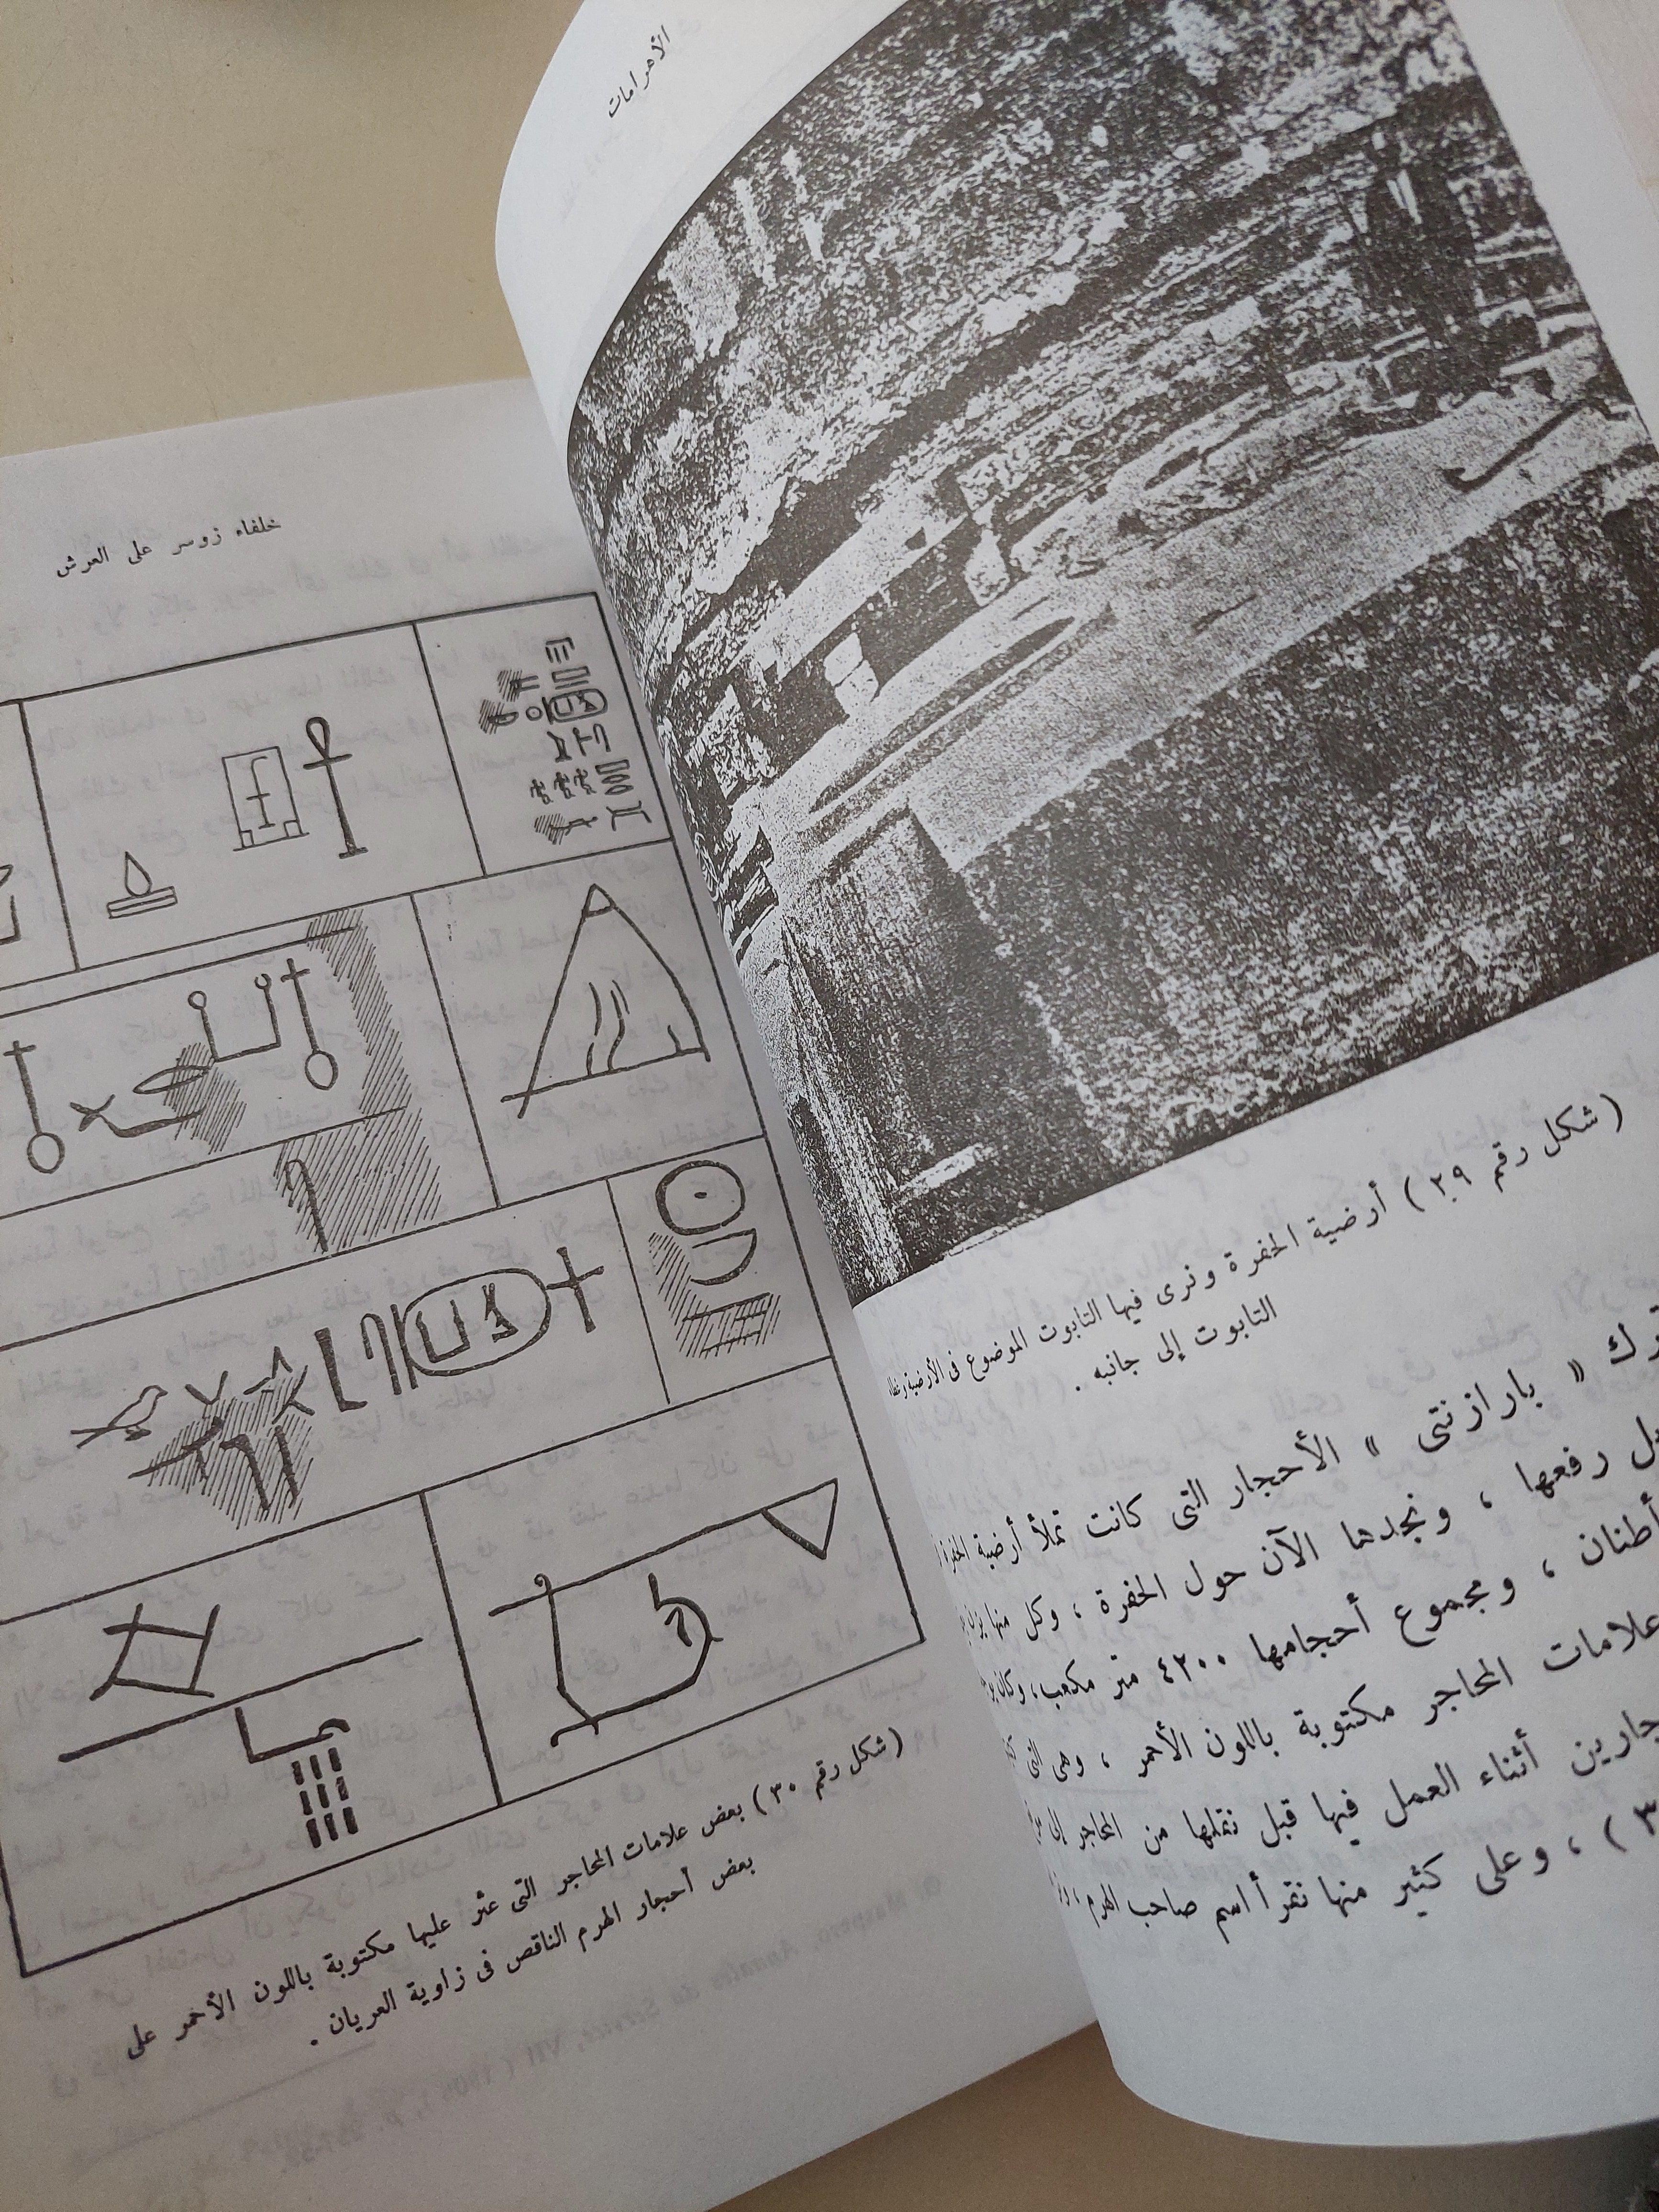 الأهرامات
(شكل رقم ٢٩) أرضية الحفرة ونرى فيها التابوت الموضوع فى الأرضية وغطاء
التابوت إلى جانبه .
« بارازنتى » الأحجار التى كانت تملأ أرضية الحفرة
رفعها ، ونجدها الآن حول الحفرة ، وكل منها يزن
أطنان ، ومجموع أحجامها ٤٢٠٠ متر مكعب ، وكان
علامات المحاجر مكتوبة باللون الأحمر ، وهى التى
أثناء العمل فيها قبل نقلها من المحاجر إلى
، وعلى كثير منها نقرأ اسم صاحب الهرم ،
خلفاء زوسر على العرش
(شكل رقم ٣٠) بعض علامات المحاجر التى عثر عليها مكتوبة باللون الأحمر على
بعض أحجار الهرم الناقص فى زاوية العريان .